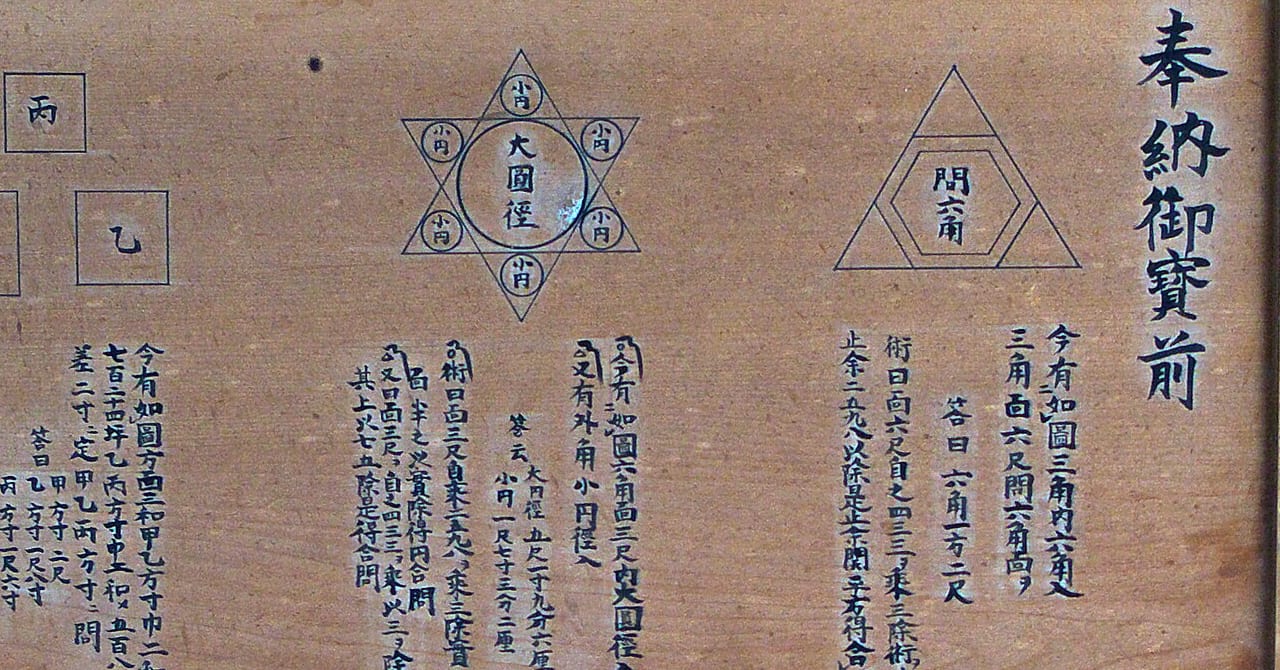 奉納御寳前
問六角
今有如圖三角内六角入
三角面六尺問六角面ヲ
答曰 六角一方二尺
術曰面六尺自之四三三ヲ乗三除術
止余二五九八以除是止余関平方得合
小円
小円
小円
大圓徑
小円
小円
小円
今有如圖六角面三尺内大圓徑
又有外角小円徑入
答云 大円徑 五尺一寸九分六厘
小円 一尺七寸三分二厘
術曰面三尺自乗二五九八ヲ乗三除實
面半之以實除得円合問
又曰面三尺ヲ自之四三三ヲ乗以三ヲ除
其上以七五除是得合問
丙
乙
今有如圖方面三和甲乙方寸巾二和
七百二十四坪乙丙方寸巾二和〆五百八
差二寸ニ定甲乙丙方寸ニ問
答曰 甲方寸二尺
乙方寸一尺八寸
丙方寸一尺六寸